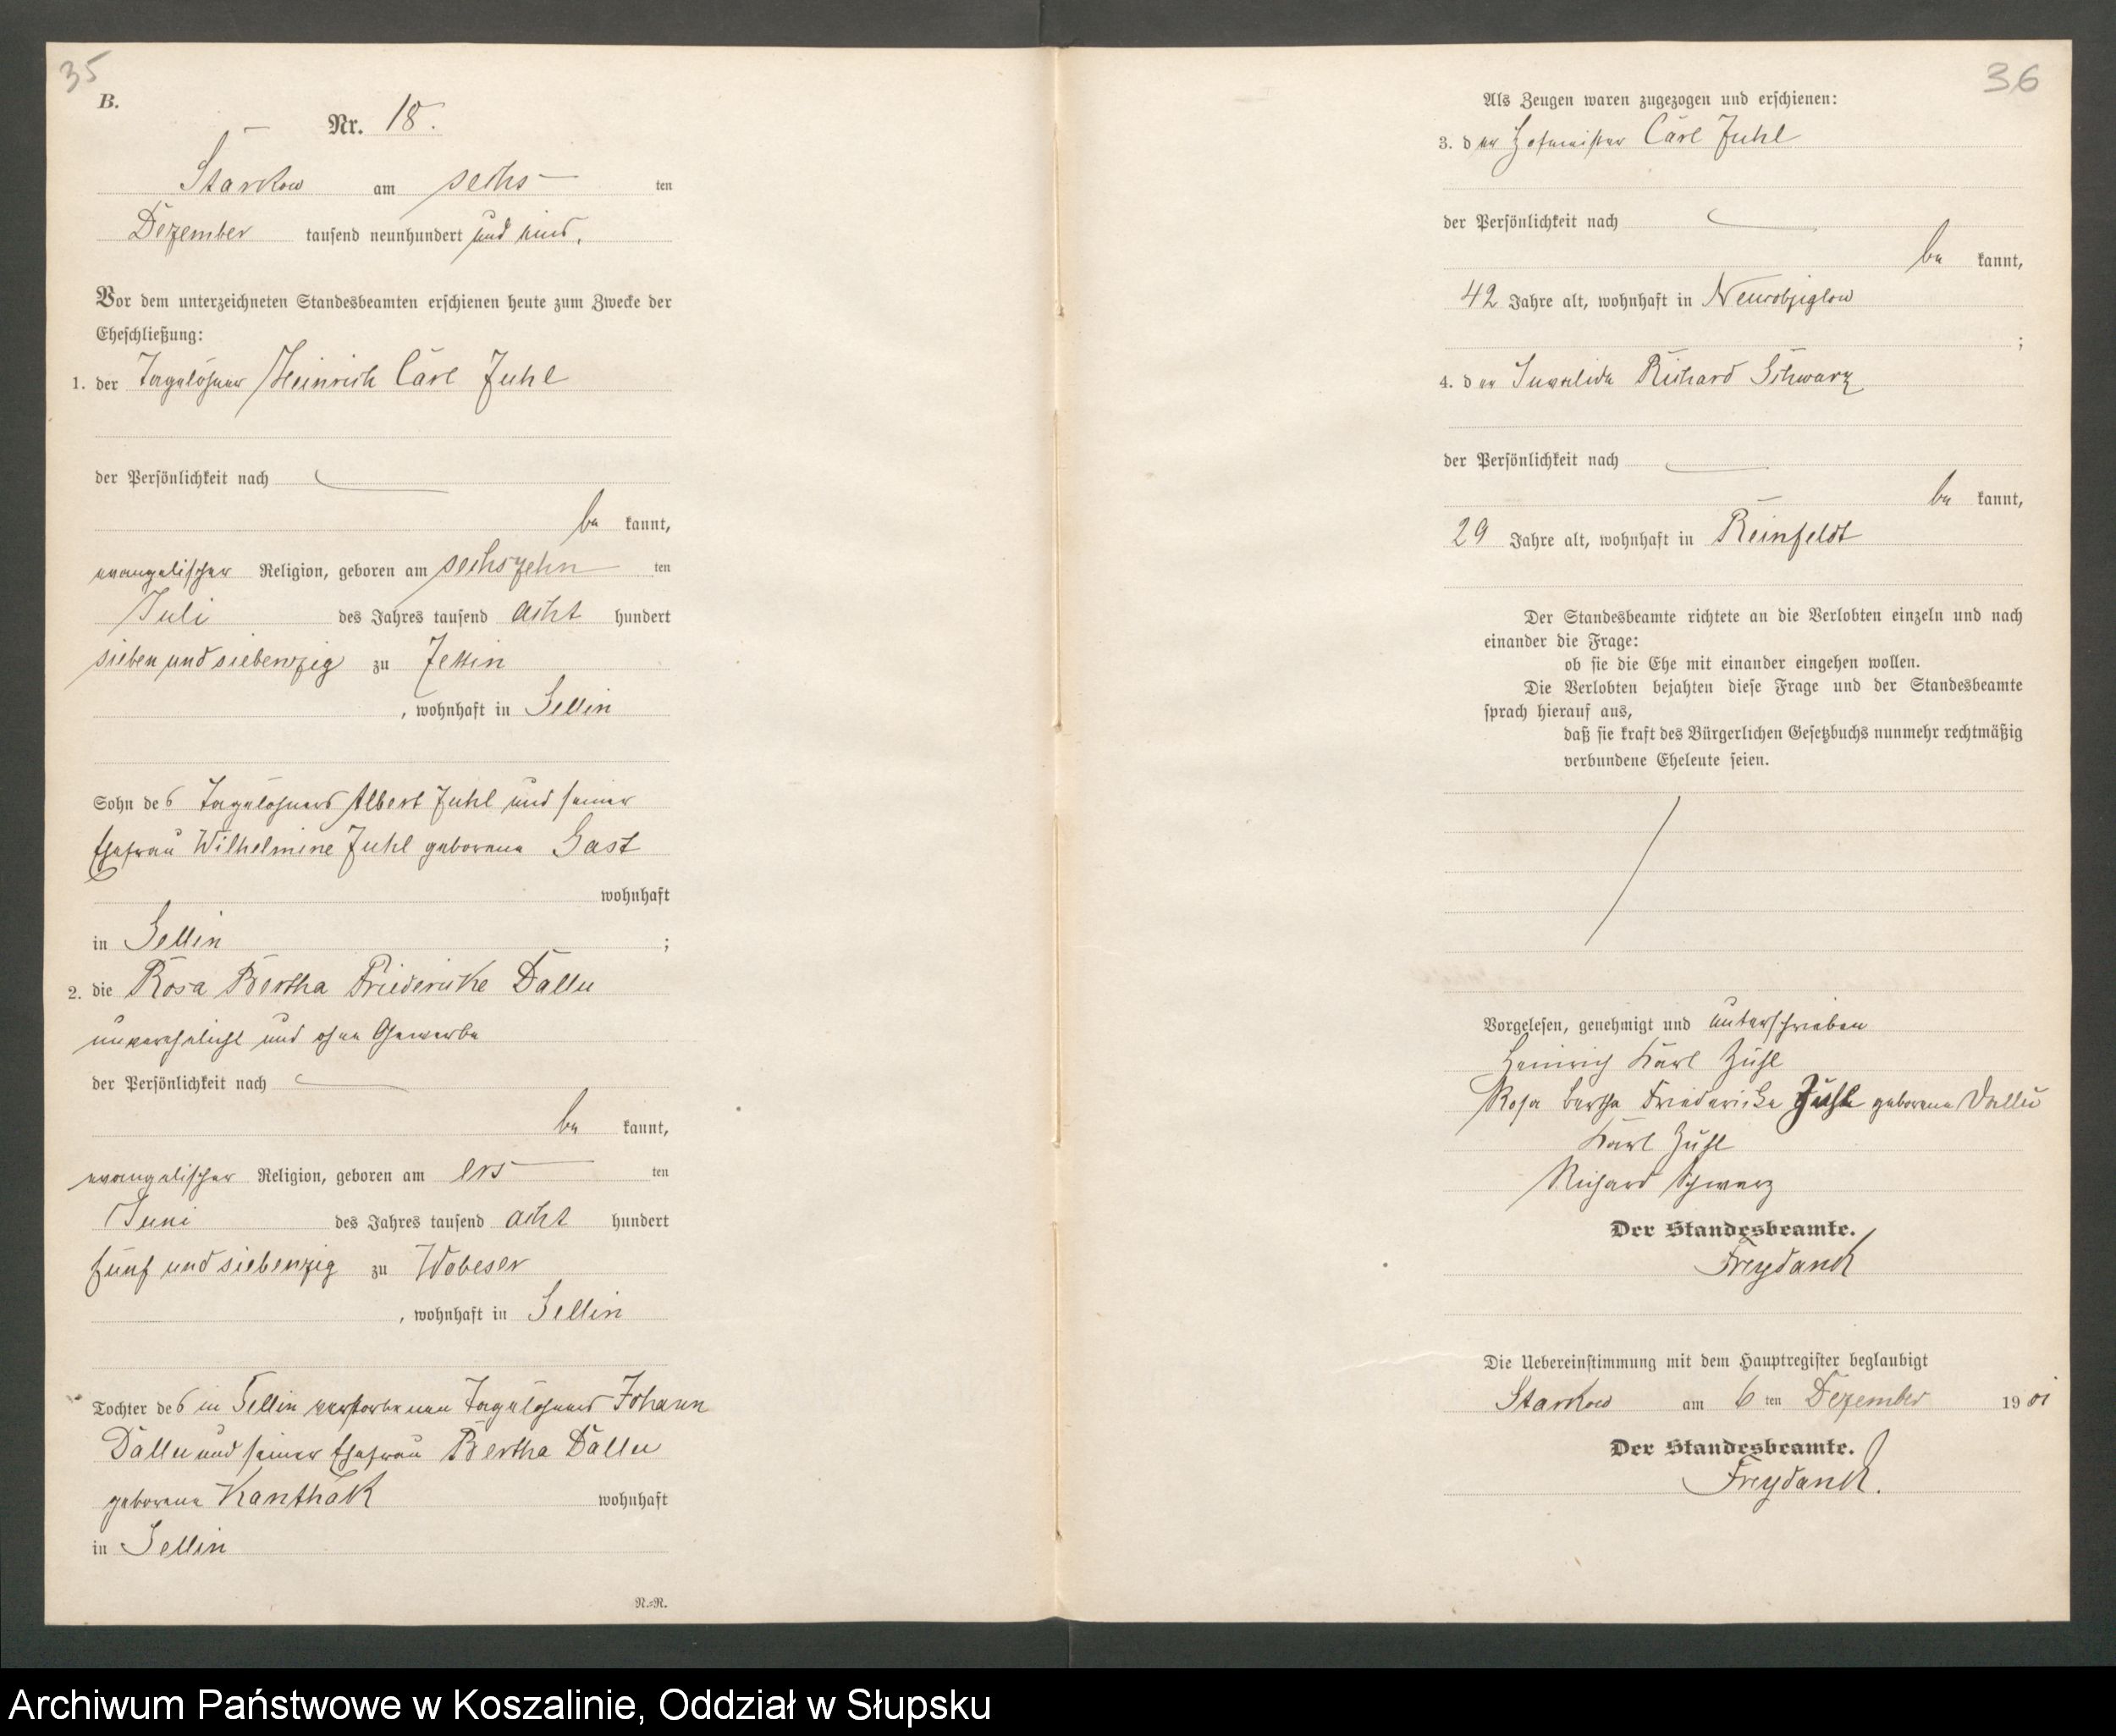 35
B.
Nr. 18.
Starkow am sechs ten
Dezember tausend neunhundert und eins.
Vor dem unterzeichneten Standesbeamten erschienen heute zum Zwecke der
Eheschließung:
1. der Tagelöhner Heinrich Carl Juhl
der Persönlichkeit nach
be kannt,
evangelischer Religion, geboren am sechszehn ten
Juli des Jahres tausend acht hundert
sieben und siebenzig zu
, wohnhaft in Sellin
Sohn des Tagelöhners Albert Juhl und seiner
Ehefrau Wilhelmine Juhl geborene Gast
wohnhaft
in Sellin ;
2. die Rosa Bertha Friedericke Dallu
unverehelicht und ohne Gewerbe
der Persönlichkeit nach
be kannt,
evangelischer Religion, geboren am ers ten
Juni des Jahres tausend acht hundert
fünf und siebenzig zu Wobeser
, wohnhaft in Sellin
Tochter des in Sellin verstorbenen Tagelöhners Johann
Dallu und seiner Ehefrau Bertha Dallu
geborene Kanthak wohnhaft
in Sellin
N.-R.
36
Als Zeugen waren zugezogen und erschienen:
3. der Hofmeister Carl Juhl
der Persönlichkeit nach
be kannt,
42 Jahre alt, wohnhaft in
;
4. der Invalide Richard Schwarz
der Persönlichkeit nach
be kannt,
29 Jahre alt, wohnhaft in Reinfeldt
Der Standesbeamte richtete an die Verlobten einzeln und nach
einander die Frage:
ob sie die Ehe mit einander eingehen wollen.
Die Verlobten bejahten diese Frage und der Standesbeamte
sprach hierauf aus,
daß sie kraft des Bürgerlichen Gesetzbuchs nunmehr rechtmäßig
verbundene Eheleute seien.
Vorgelesen, genehmigt und unterschrieben
Heinrich Karl Juhl
Rosa Bertha Friedericke Juhl geborene Dallu
Karl Juhl
Richard Schwarz
Der Standesbeamte.
Freydanck
Die Uebereinstimmung mit dem Hauptregister beglaubigt
Starkow am 6 ten Dezember 19 01
Der Standesbeamte.
Freydanck.
Archiwum Państwowe w Koszalinie, Oddział w Słupsku